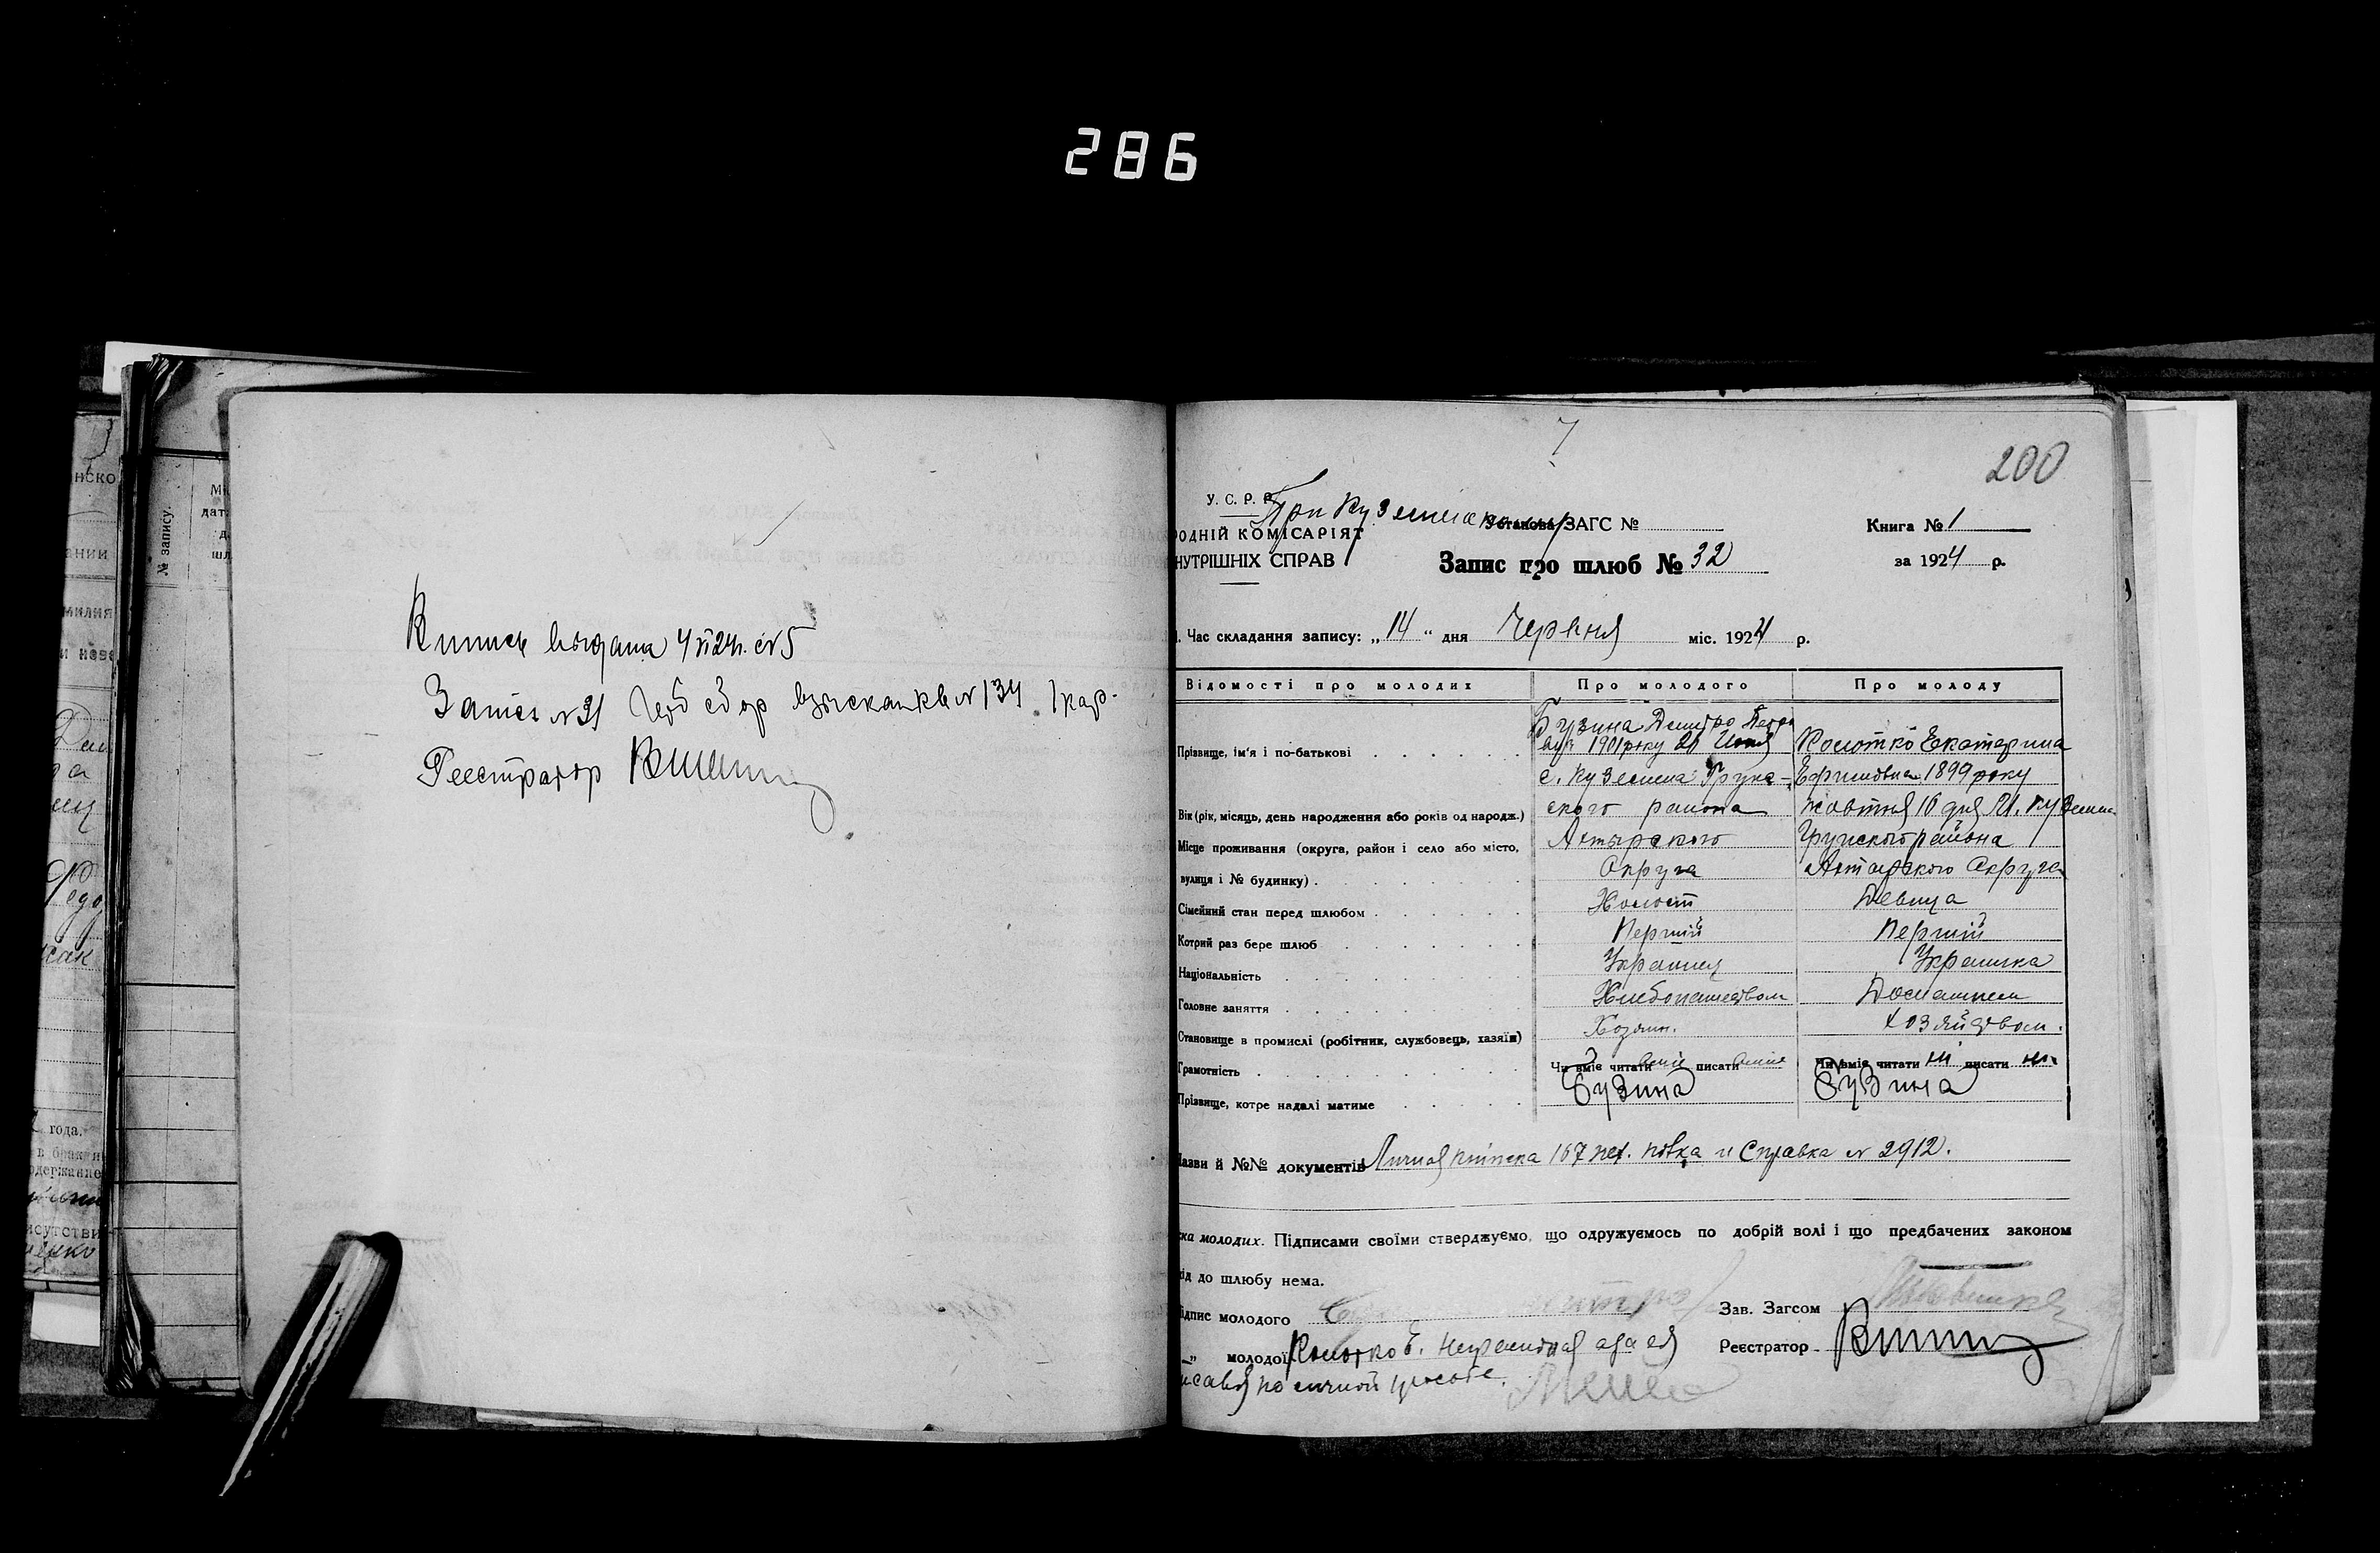 286
нско
ании
милия
и
Федо
года.
в брак
исутстви
№ запису.
дат
шл
Выпись выдана 4 VI 24 г. № 5
Запись № 31 Герб сбор взыскан кв № 134 1 кар.
Реестратор
7
200
У. С. Р. Р.
При Кузем
ОДНІЙ КОМІСАРІЯТ
Установа ЗАГС №
Книга № 1
НУТРІШНІХ СПРАВ
Запис про шлюб № 32
за 1924 р.
Час складання запису: „14“ дня Червня міс. 1924 р.
Відомості про молодих
Про молодого
Про молоду
Прізвище, ім'я і по-батькові
Бузина Дмитро
1901 року 20
Колотко Екатерина
с. Куземена Грунс-
Ефимовна 1899 року
Вік (рік, місяць, день народження або років од народж.)
ского района
жовтня 16 дня М. Куземен
Місце проживання (округа, район і село або місто,
Ахтырского
Грунского района
вулиця і № будинку)
Округа
Ахтырского Округа
Сімейний стан перед шлюбом
Холост
Девица
Котрий раз бере шлюб
Перший
Перший
Національність
Украинец
Украинка
Головне заняття
Хлебопашеством
Домашнем
Становище в промислі (робітник, службовець, хазяїн)
Хозяин.
хозяйством.
Грамотність
Чи вміє читати вміє писати вміє
Чи вміє читати ні писати ні
Прізвище, котре надалі матиме
Бузина
Бузина
азви й №№ документів Личная книжка 167 пех. полка и Справка № 2912.
ка молодих. Підписами своїми стверджуємо, що одружуємось по добрій волі і що предбачених законом
ід до шлюбу нема.
ідпис молодого
Зав. Загсом
„ молодої Колотко Е. неграмотная а за ея
Реєстратор
по личной просьбе.